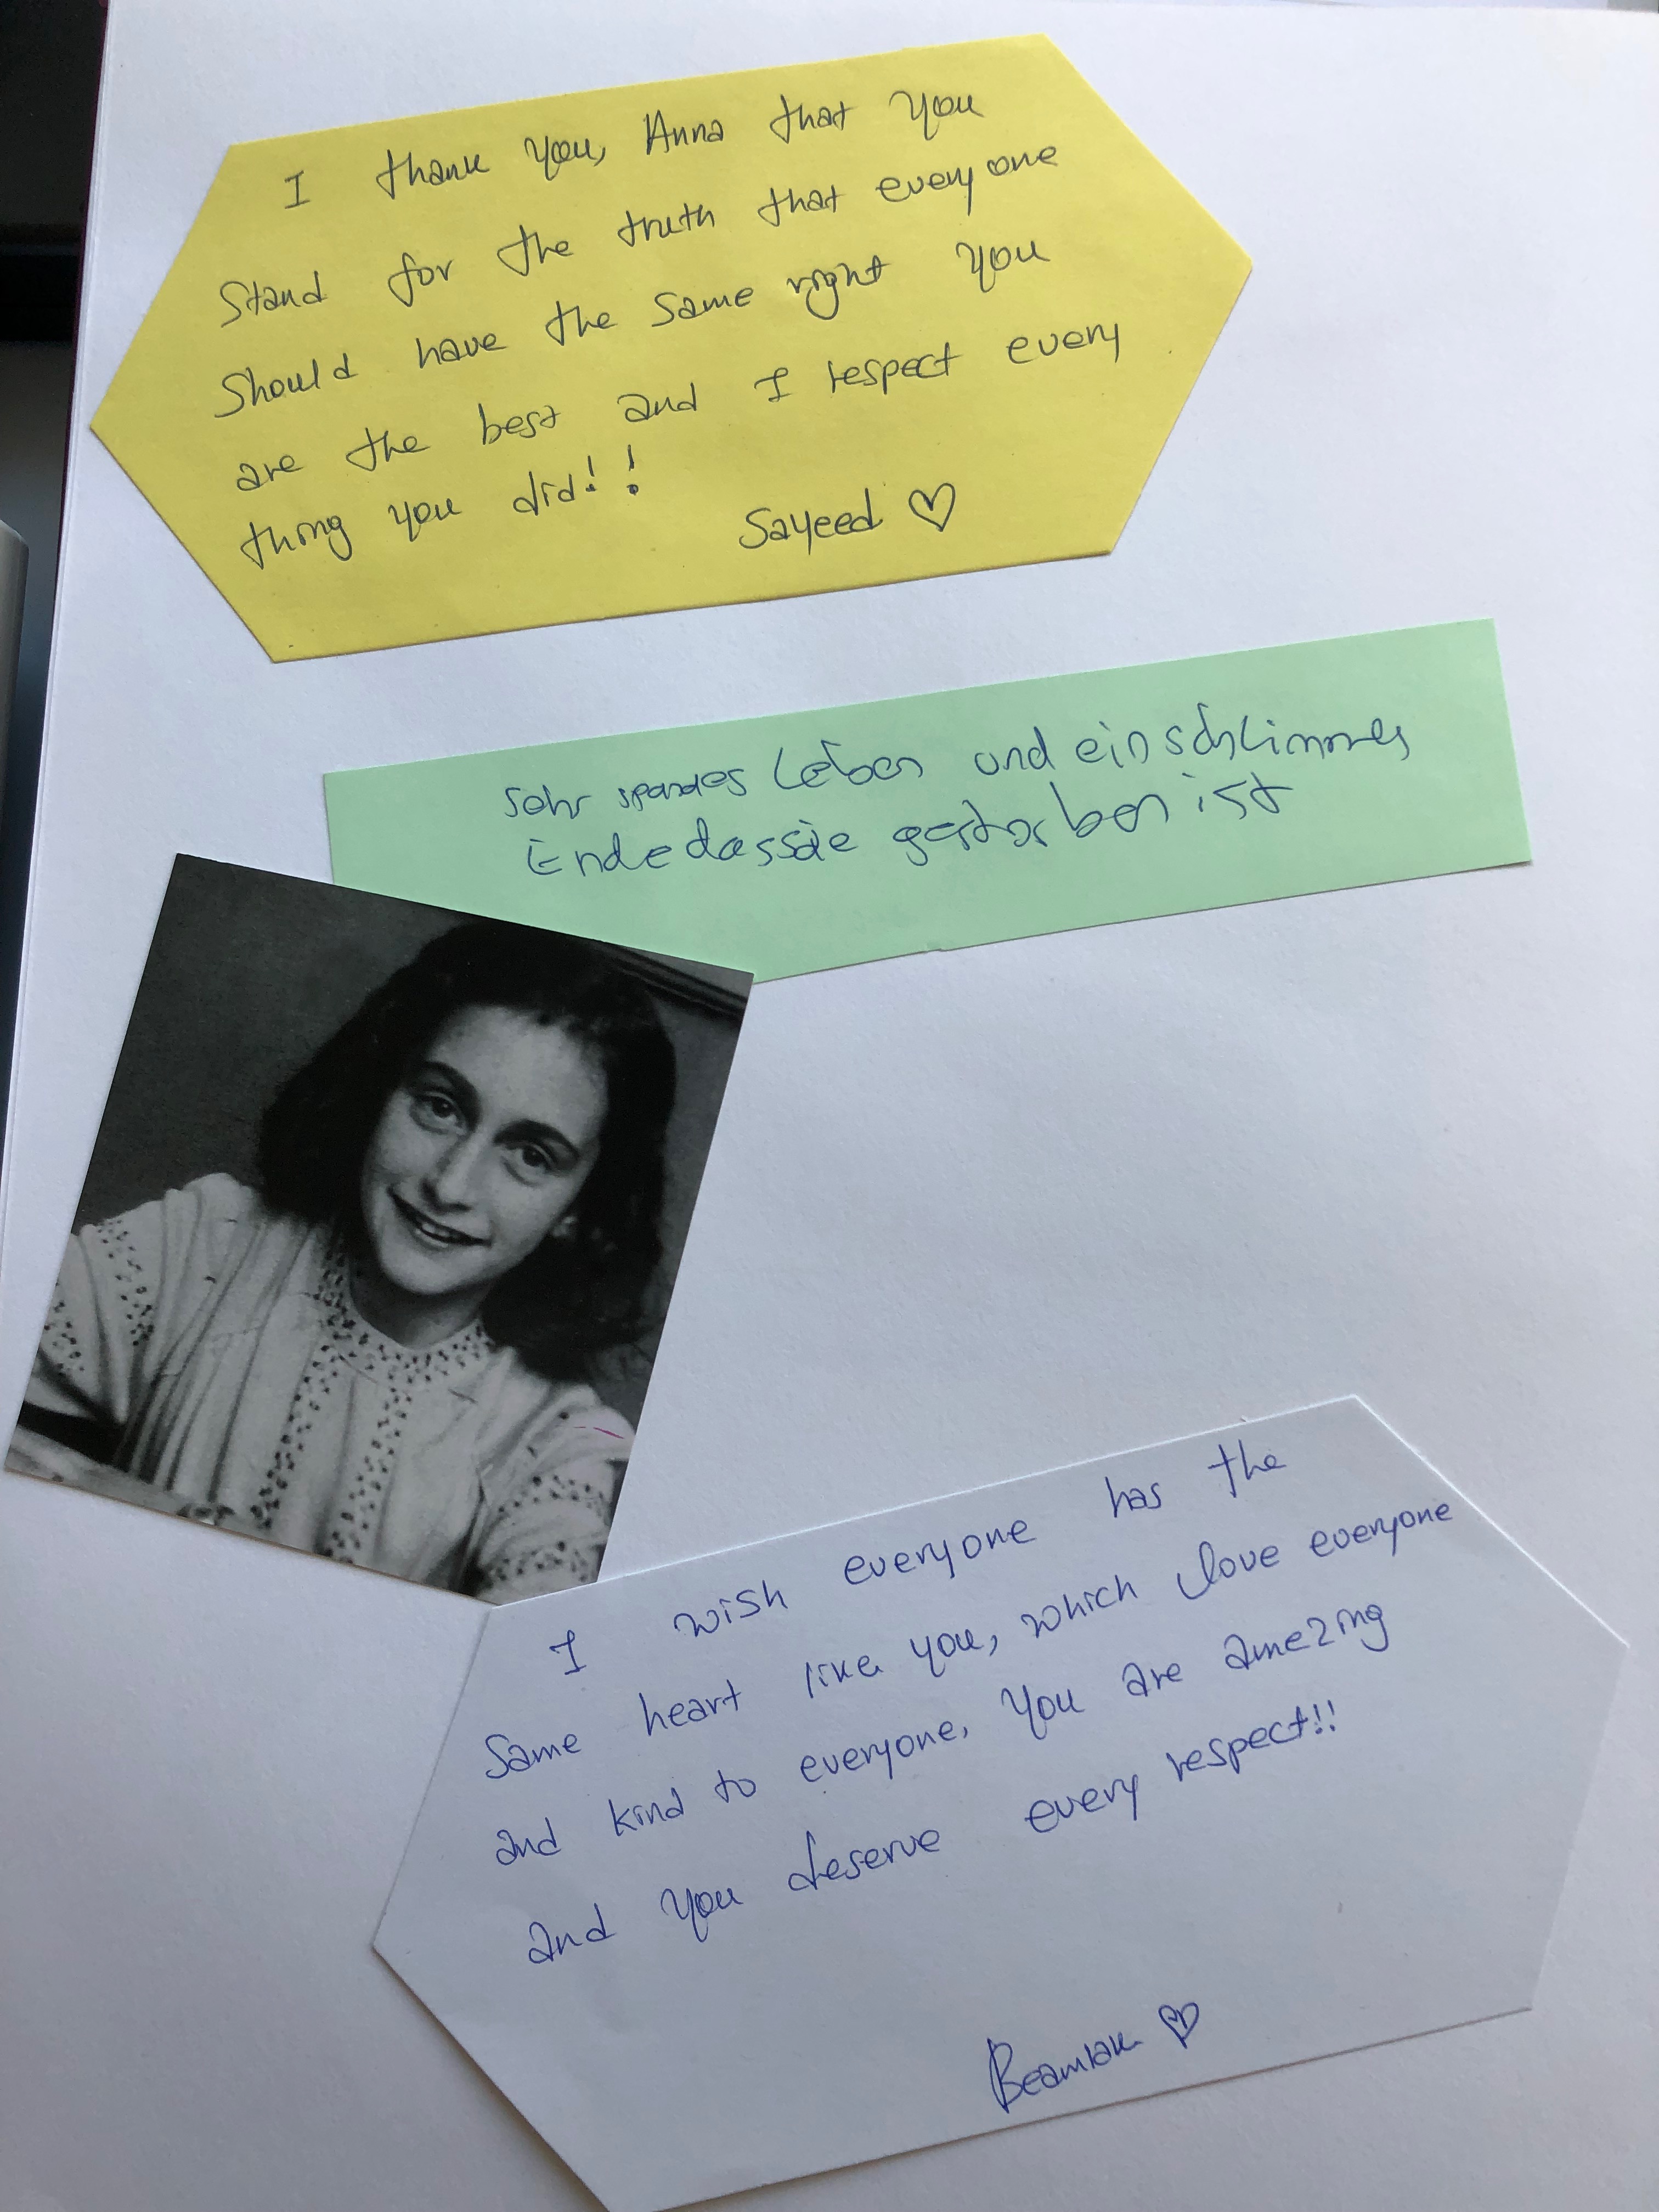 I thank you, Anna that you
Stand for the truth that every one
Should have the same right you
are the best and I respect every
thing you did!!
Sayeed ♡
sehr spandes Leben und ein schlimmes
Ende dass sie gestorben ist
I wish everyone has the
Same heart like you, which love everyone
and kind to everyone, You are amezing
and you deserve every respect!!
Beamlak ♡